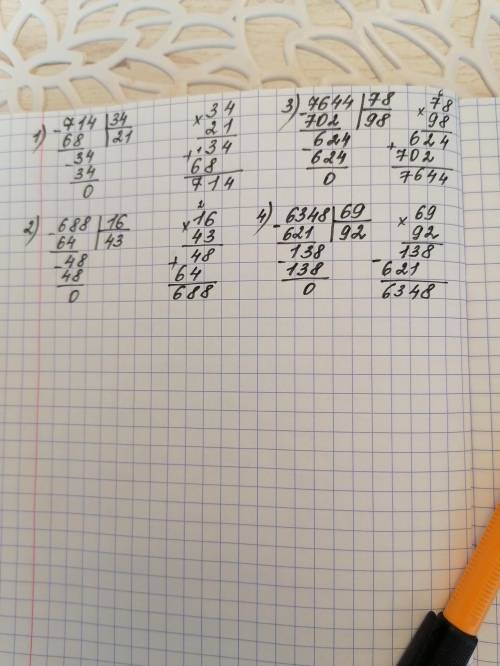 1) -714 | 34
68 | 21
-34
34
0
× 34
21
+ 34
68
714
2) -688 | 16
64 | 43
-48
48
0
2
× 16
43
+ 48
64
688
3) -7644 | 78
702 | 98
-624
624
0
6
× 78
98
+ 624
702
7644
4) -6348 | 69
621 | 92
-138
138
0
× 69
92
- 138
621
6348